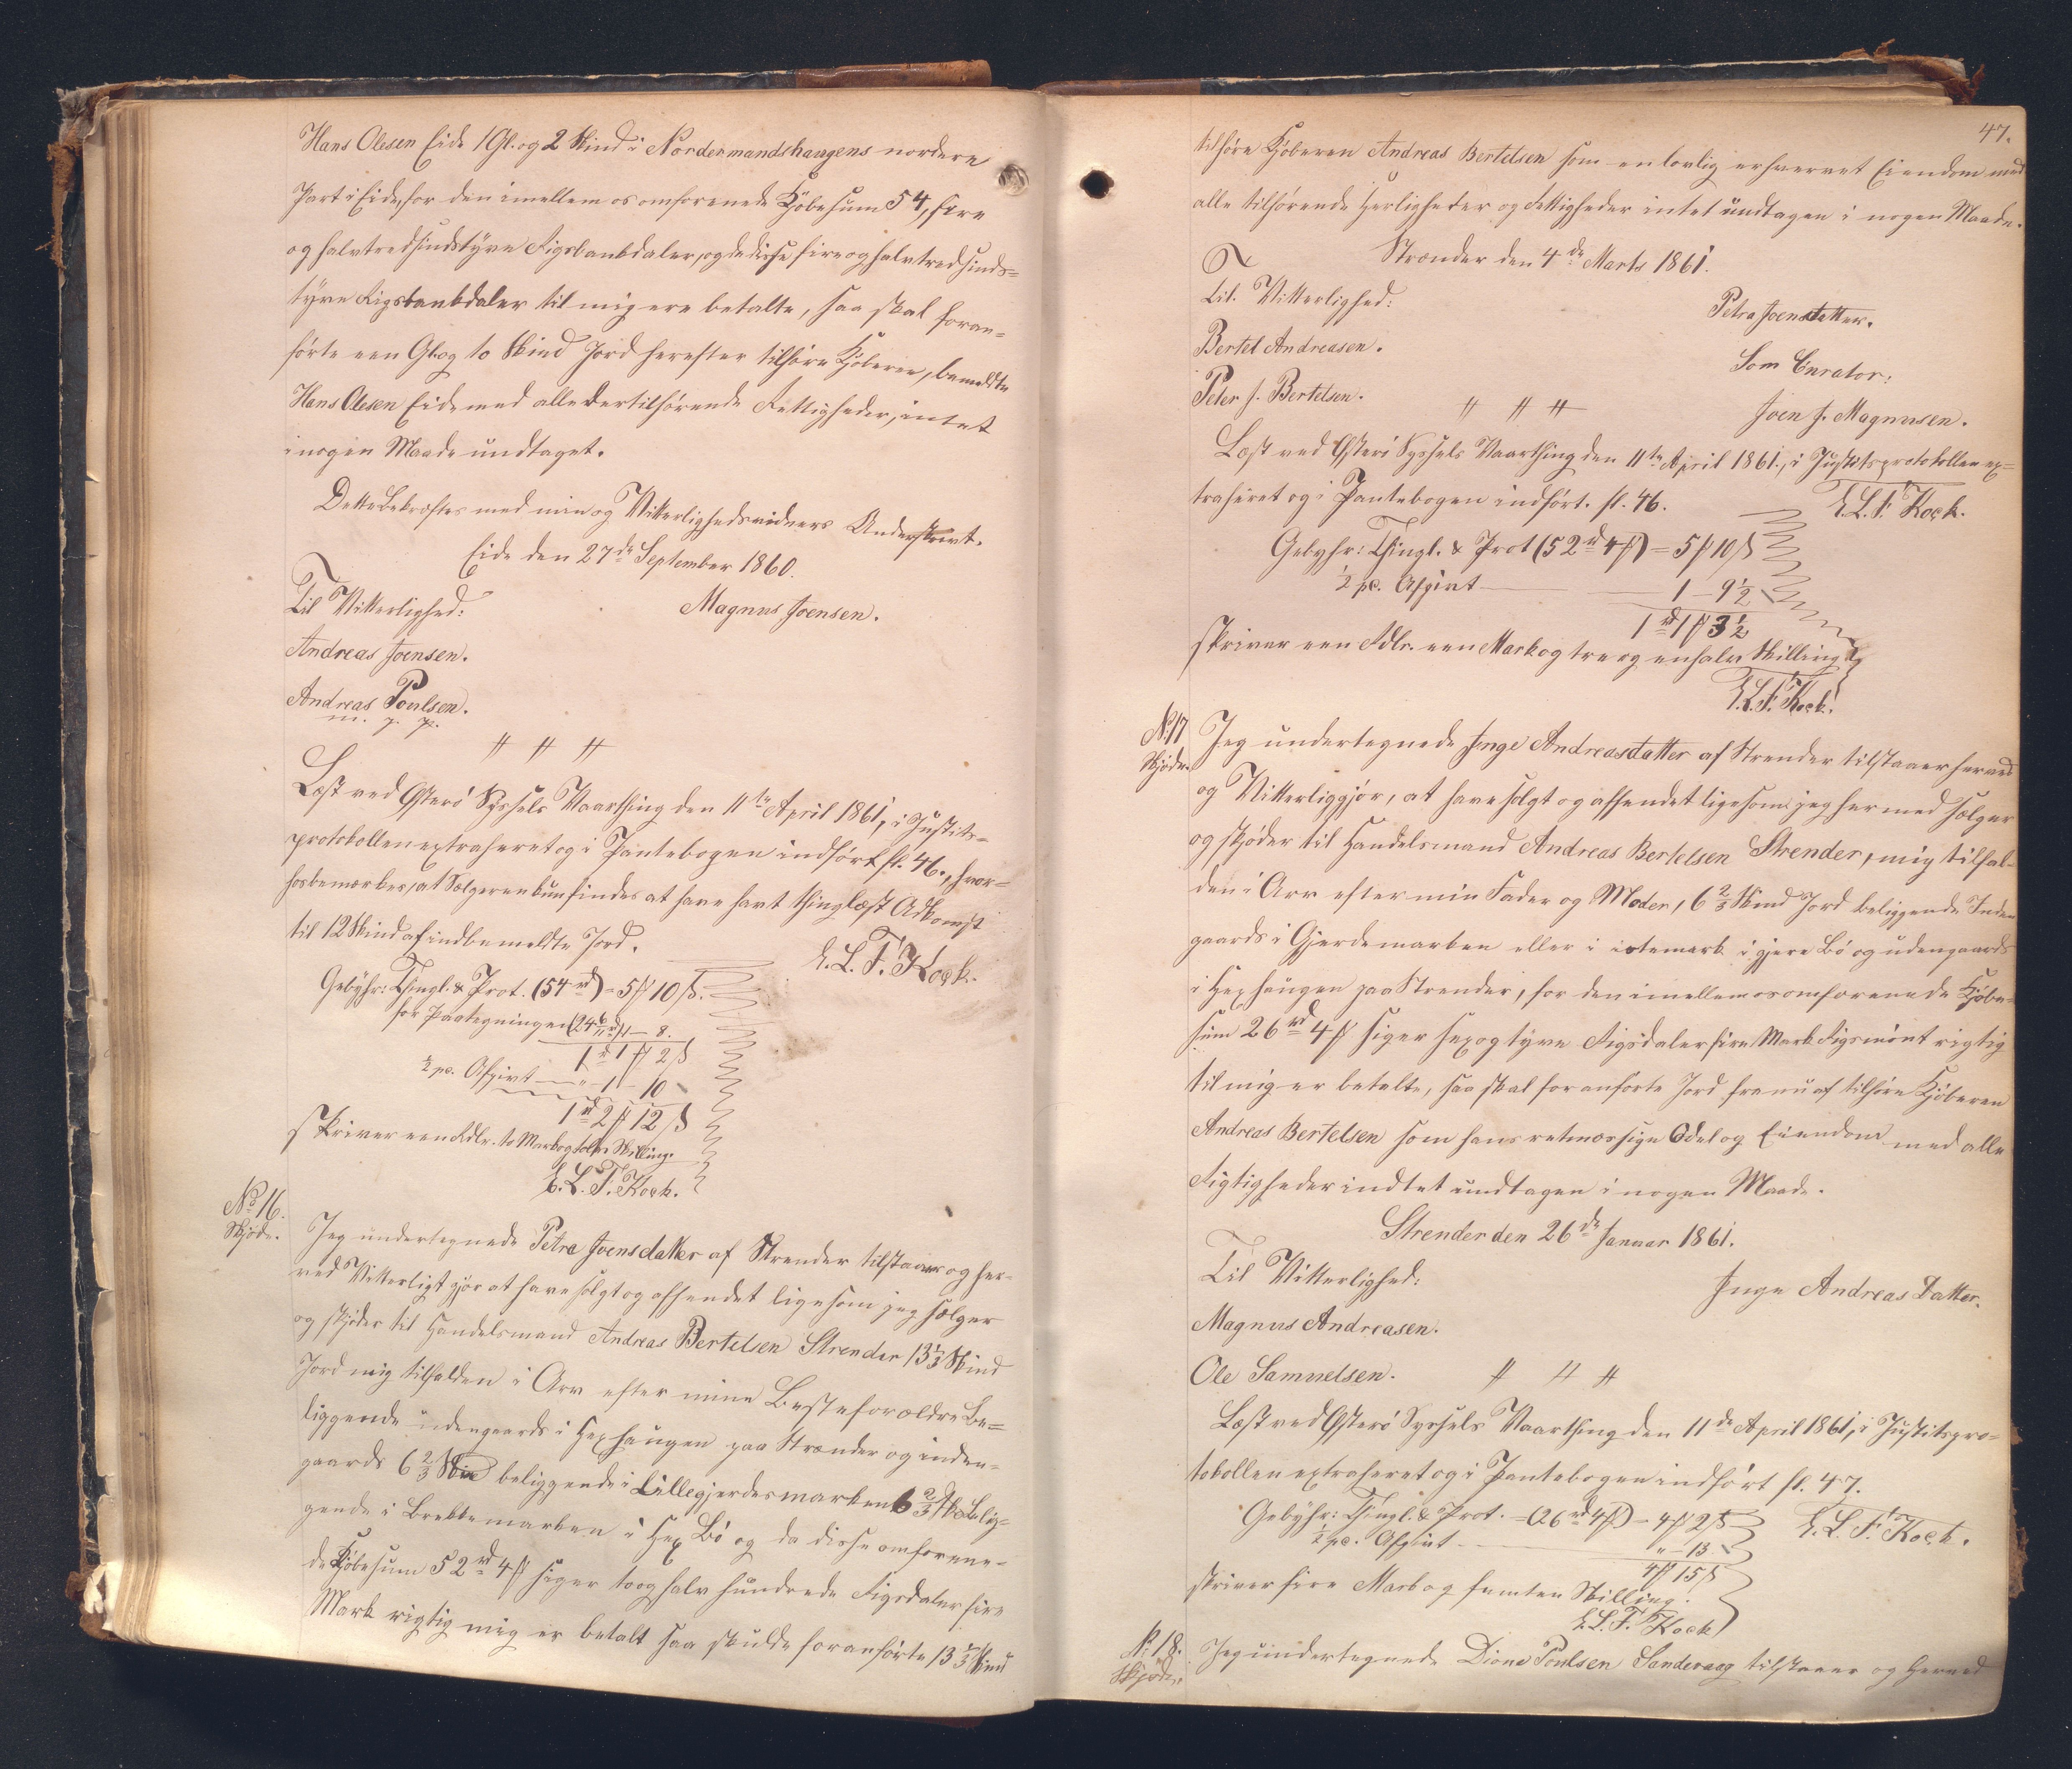 Hans Olesen Eide 1 Gl. og 2 Skind i Nordermandshaugens nordere
Part i Eide, for den imellem os omforenede Kjöbesum 54, fire
og halvtredsindstyve Rigsbankdaler, og da disse fire og halvtredsinds=
tyve Rigsbankdaler til mig ere betalte, saa skal foran=
förte een Gl. og to Skind Jord herefter tilhöre Kjöberen, bemeldte
Hans Olesen Eide med alle dertilhörende Rettigheder, intet
i nogen Maade undtaget.
Dette bekræftes med min og Vitterlighedsvidners Underskrivt.
Eide den 27de September 1860.
Til Vitterlighed:
Magnus Joensen.
Andreas Joensen.
Andreas Poulsen.
m. p. p.
Læst ved Österö Syssels Vaarthing den 11te April 1861, i Justits=
protokollen extraheret og i Pantebogen indfört fl. 46., hvor=
hos bemærkes, at Sælgeren kun findes at have havt thinglæst Adkomst
til 12 Skind af indbemeldte Jord.
E. L. T. Kock.
Gebyhr: Thingl. & Prot. (54 rd) = 5 ℳ 10 ß.
for Paategningen (24 6/11 rd) 1 — 8.
1 rd 1 ℳ 2 ß
½ pc. Afgivt — " — 1 — 10
1 rd 2 ℳ 12 ß
skriver een Rdlr. to Mark og tolv Skilling.
E. L. T. Kock.
No 16.
Skjöde.
Jeg undertegnede Petra Joensdatter af Strender tilstaaer og her=
ved Vitterligt gjör at have solgt og afhendet ligesom jeg sælger
og skjöder til Handelsmand Andreas Bertelsen Strender 13⅓ Skind
Jord mig tilfalden i Arv efter mine Besteforældre be=
liggende udengaards i Hexhaugen paa Strænder og inden=
gaards 6⅔ Skind beliggende i Lillegjerdesmarken 6⅔ Sk belig=
gende i Brekkemarken i Hex Bö og da disse omforene=
de Kjöbesum 52 rd 4 ℳ siger to og halv hundrede Rigsdaler fire
Mark rigtig mig er betalt saa skulde foranförte 13⅓ Skind
47.
tilhöre Kjöberen Andreas Bertelsen som en lovlig erhvervet Eiendom med
alle tilhörende Herligheder og Rettigheder intet undtagen i nogen Maade.
Strænder den 4de Marts 1861.
Til Vitterlighed:
Petra Joensdatter.
Bertel Andreasen.
Som Curator:
Peter J. Bertelsen.
Joen J. Magnusen.
Læst ved Österö Syssels Vaarthing den 11te April 1861, i Justitsprotokollen ex=
traheret og i Pantebogen indfört. fl. 46.
E. L. T. Kock.
Gebyhr: Thingl. & Prot (52 rd 4 ℳ) = 5 ℳ 10 ß
½ pc. Afgivt — 1 — 9½
1 rd 1 ℳ 3½
skriver een Rdlr. een Mark og tre og en halv Skilling
E. L. T. Kock.
No 17
Skjöde.
Jeg undertegnede Inge Andreasdatter af Strender tilstaaer herved
og Vitterliggjör, at have solgt og afhendet ligesom jeg hermed sælger
og skjöder til Handelsmand Andreas Bertelsen Strender, mig tilfal=
den i Arv efter min Fader og Moder, 6⅔ Skind Jord beliggende Inden
gaards i Gjerdemarken eller i istemark i gjere Bö og udengaards
i Hexhaugen paa Strender, for den imellem os omforenede Kjöbe=
sum 26 rd 4 ℳ siger sex og tyve Rigsdaler fire Mark Rigsmönt rigtig
til mig er betalte, saa skal foranförte Jord fra nu af tilhöre Kjöberen
Andreas Bertelsen som hans retmæssige Odel og Eiendom med alle
Rigtigheder indtet undtagen i nogen Maade.
Strender den 26de Januar 1861.
Til Vitterlighed:
Inge Andreas Datter.
Magnus Andreasen.
Ole Samuelsen.
Læst ved Österö Syssels Vaarthing den 11de April 1861, i Justitspro=
tokollen extraheret og i Pantebogen indfört fl. 47.
Gebyhr: Thingl. & Prot. = (26 rd 4 ℳ) = 4 ℳ 2 ß
E. L. T. Kock.
½ pc. Afgivt — " — 13.
4 ℳ 15 ß
skriver fire Mark og femten Skilling.
E. L. T. Kock
No 18.
Skjöde.
Jeg undertegnede Dione Poulsen Sandevaag tilstaaer og herved